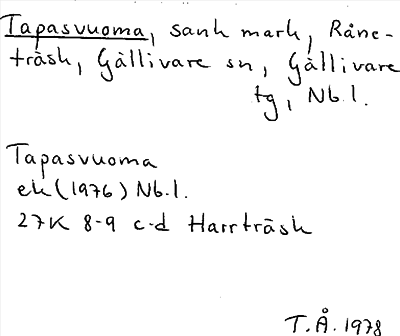 Tapasvuoma, sank mark, Råne-
träsk, Gällivare sn, Gällivare
tg, Nb.l.
Tapasvuoma
ek (1976) Nb.l.
27K 8-9 c-d Harrträsk
T.Å. 1978